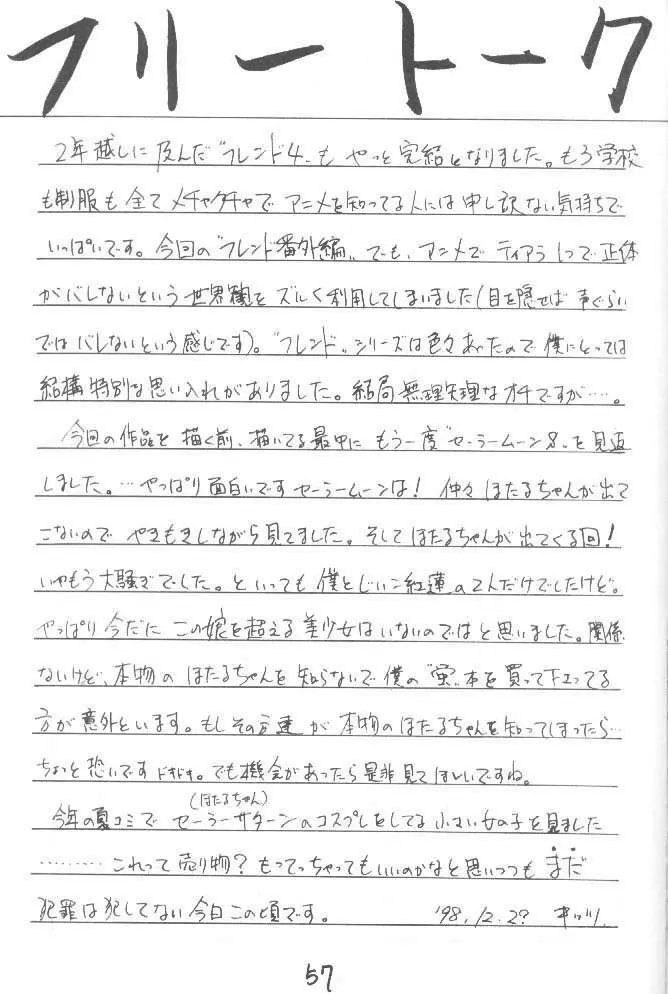 フリートーク
2年越しに及んだ“フレンド4„も やっと完結となりました。もう学校
も制服も全てメチャクチャで アニメを知ってる人には申し訳ない気持ちで
いっぱいです。今回の“フレンド番外編„でも、アニメで ティアラ1つで正体
がバレないという世界観を ズルく利用してしまいました(目を隠せば 声ぐらい
ではバレないという感じです)。“フレンド„シリーズは色々あったので 僕にとっては
結構 特別な思い入れがありました。結局 無理矢理なオチですが……。
今回の作品を 描く前、描いてる最中に もう一度“セーラームーンS„を 見返
しました。…やっぱり面白いです セーラームーンは! 仲々 ほたるちゃんが出て
こないので やきもきしながら見てました。そして ほたるちゃんが 出てくる回!
いやもう大騒ぎでした。といっても 僕とじいこ紅蓮の2人だけでしたけど。
やっぱり 今だに この娘を超える 美少女はいないのではと思いました。関係
ないけど、本物の ほたるちゃんを 知らないで 僕の“蛍„本を 買って下さってる
方が 意外といます。もし その方達 が 本物のほたるちゃんを知ってしまったら…
ちょっと 恐いです ドキドキ。でも機会があったら是非見てほしいですね。
(ほたるちゃん)
今年の夏コミで セーラーサターンのコスプレをしてる 小さい女の子を見ました
……… これって 売り物? もってっちゃってもいいのかなと思いつつも まだ
犯罪は犯してない今日この頃です。 '98.12.27 キッツ.
57